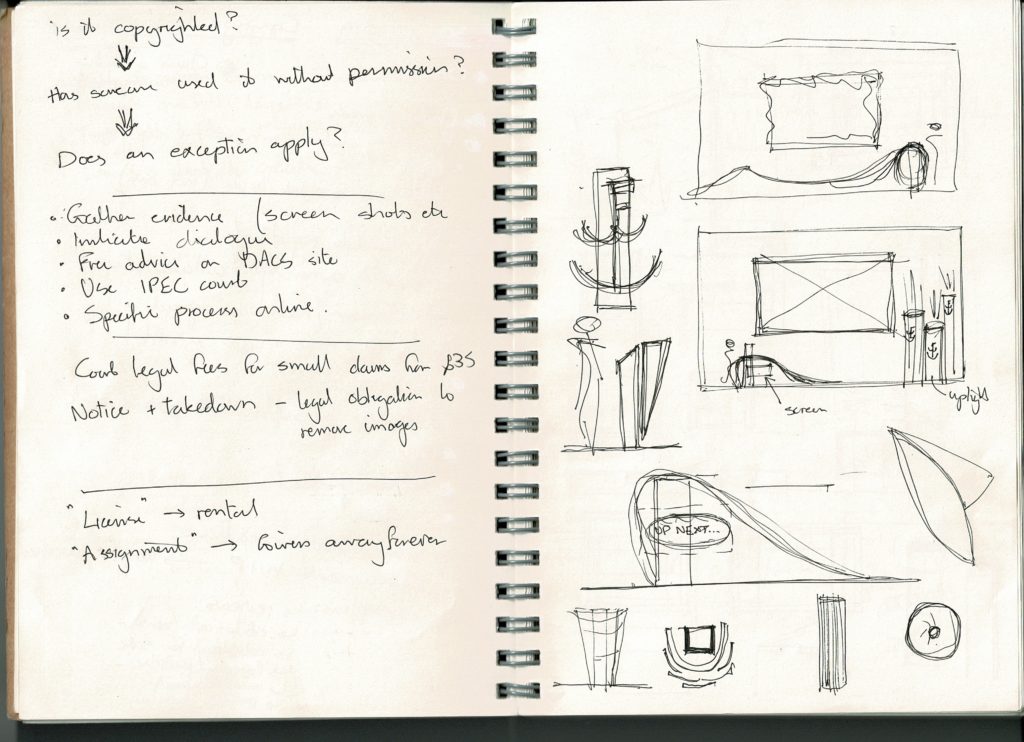 is it copyrighted?
Has someone used it without permission?
Does an exception apply?
• Gather evidence (screen shots etc
• Initiate dialogue
• Free advice on DACS site
• Use IPEC court
• Specific process online.
Court legal fees for small claims from £35
Notice + takedown - legal obligation to
remove images
"License" → rental
"Assignment" → Givers away forever
screen
uplight
UP NEXT...